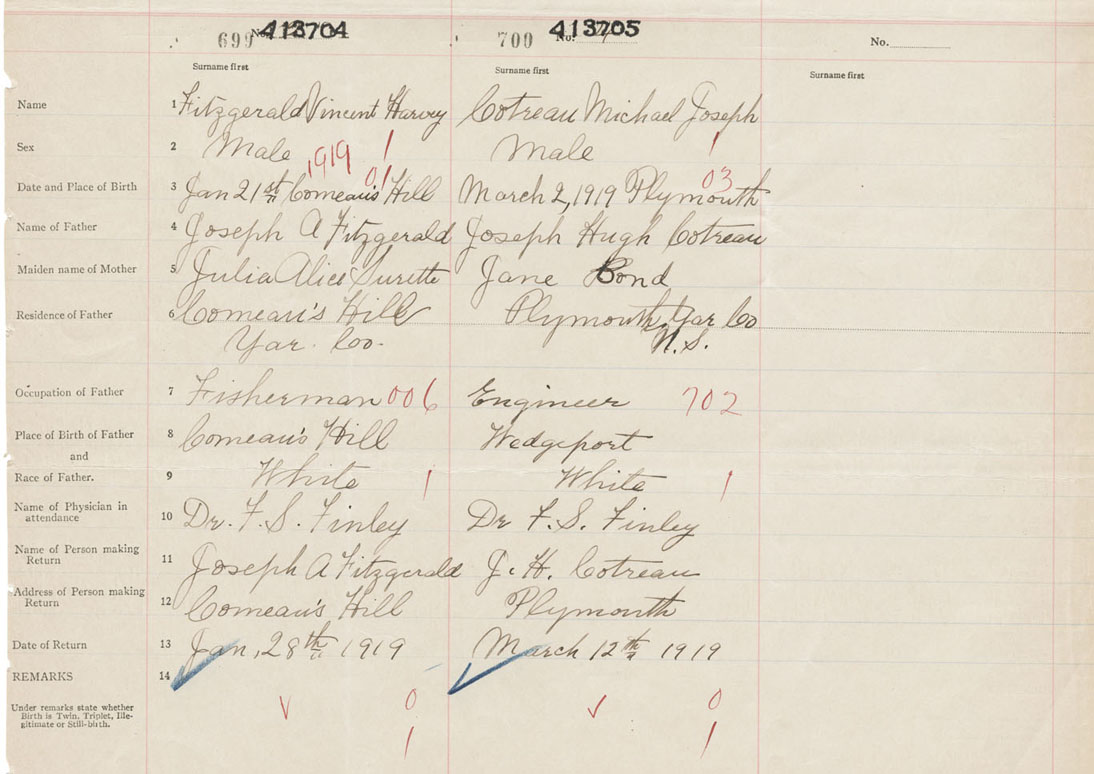 699 No. 413704 700 No. 413705 No.
Surname first Surname first Surname first
Name 1 Fitzgerald Vincent Harvey Cotreau Michael Joseph
Sex 2 Male 1 Male 1
1919 01 03
Date and Place of Birth 3 Jan 21st Comeau's Hill March 2, 1919 Plymouth
Name of Father 4 Joseph A Fitzgerald Joseph Hugh Cotreau
Maiden name of Mother 5 Julia Alice Surette Jane Bond
Residence of Father 6 Comeau's Hill Plymouth, Yar Co
Yar. Co. N.S.
Occupation of Father 7 Fisherman 006 Engineer 702
Place of Birth of Father 8 Comeau's Hill Wedgeport
and
Race of Father. 9 White 1 White 1
Name of Physician in
attendance 10 Dr. F. S. Finley Dr F. S. Finley
Name of Person making
Return 11 Joseph A Fitzgerald J. H. Cotreau
Address of Person making
Return 12 Comeau's Hill Plymouth
Date of Return 13 Jan, 28th 1919 March 12th 1919
REMARKS 14
Under remarks state whether 0 0
Birth is Twin, Triplet, Ille-
gitimate or Still-birth.
1 1